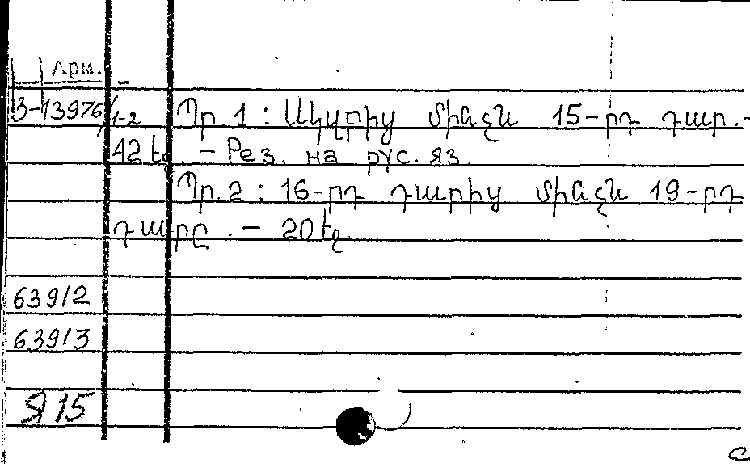 Арм.
3-13976/1-2 Պր. 1 : Սկզբից մինչև 15-րդ դար.-
42 էջ - Рез. на рус. яз.
Պր. 2 : 16-րդ դարից մինչև 19-րդ
դարը. - 20 էջ
639/2
639/3
Я15